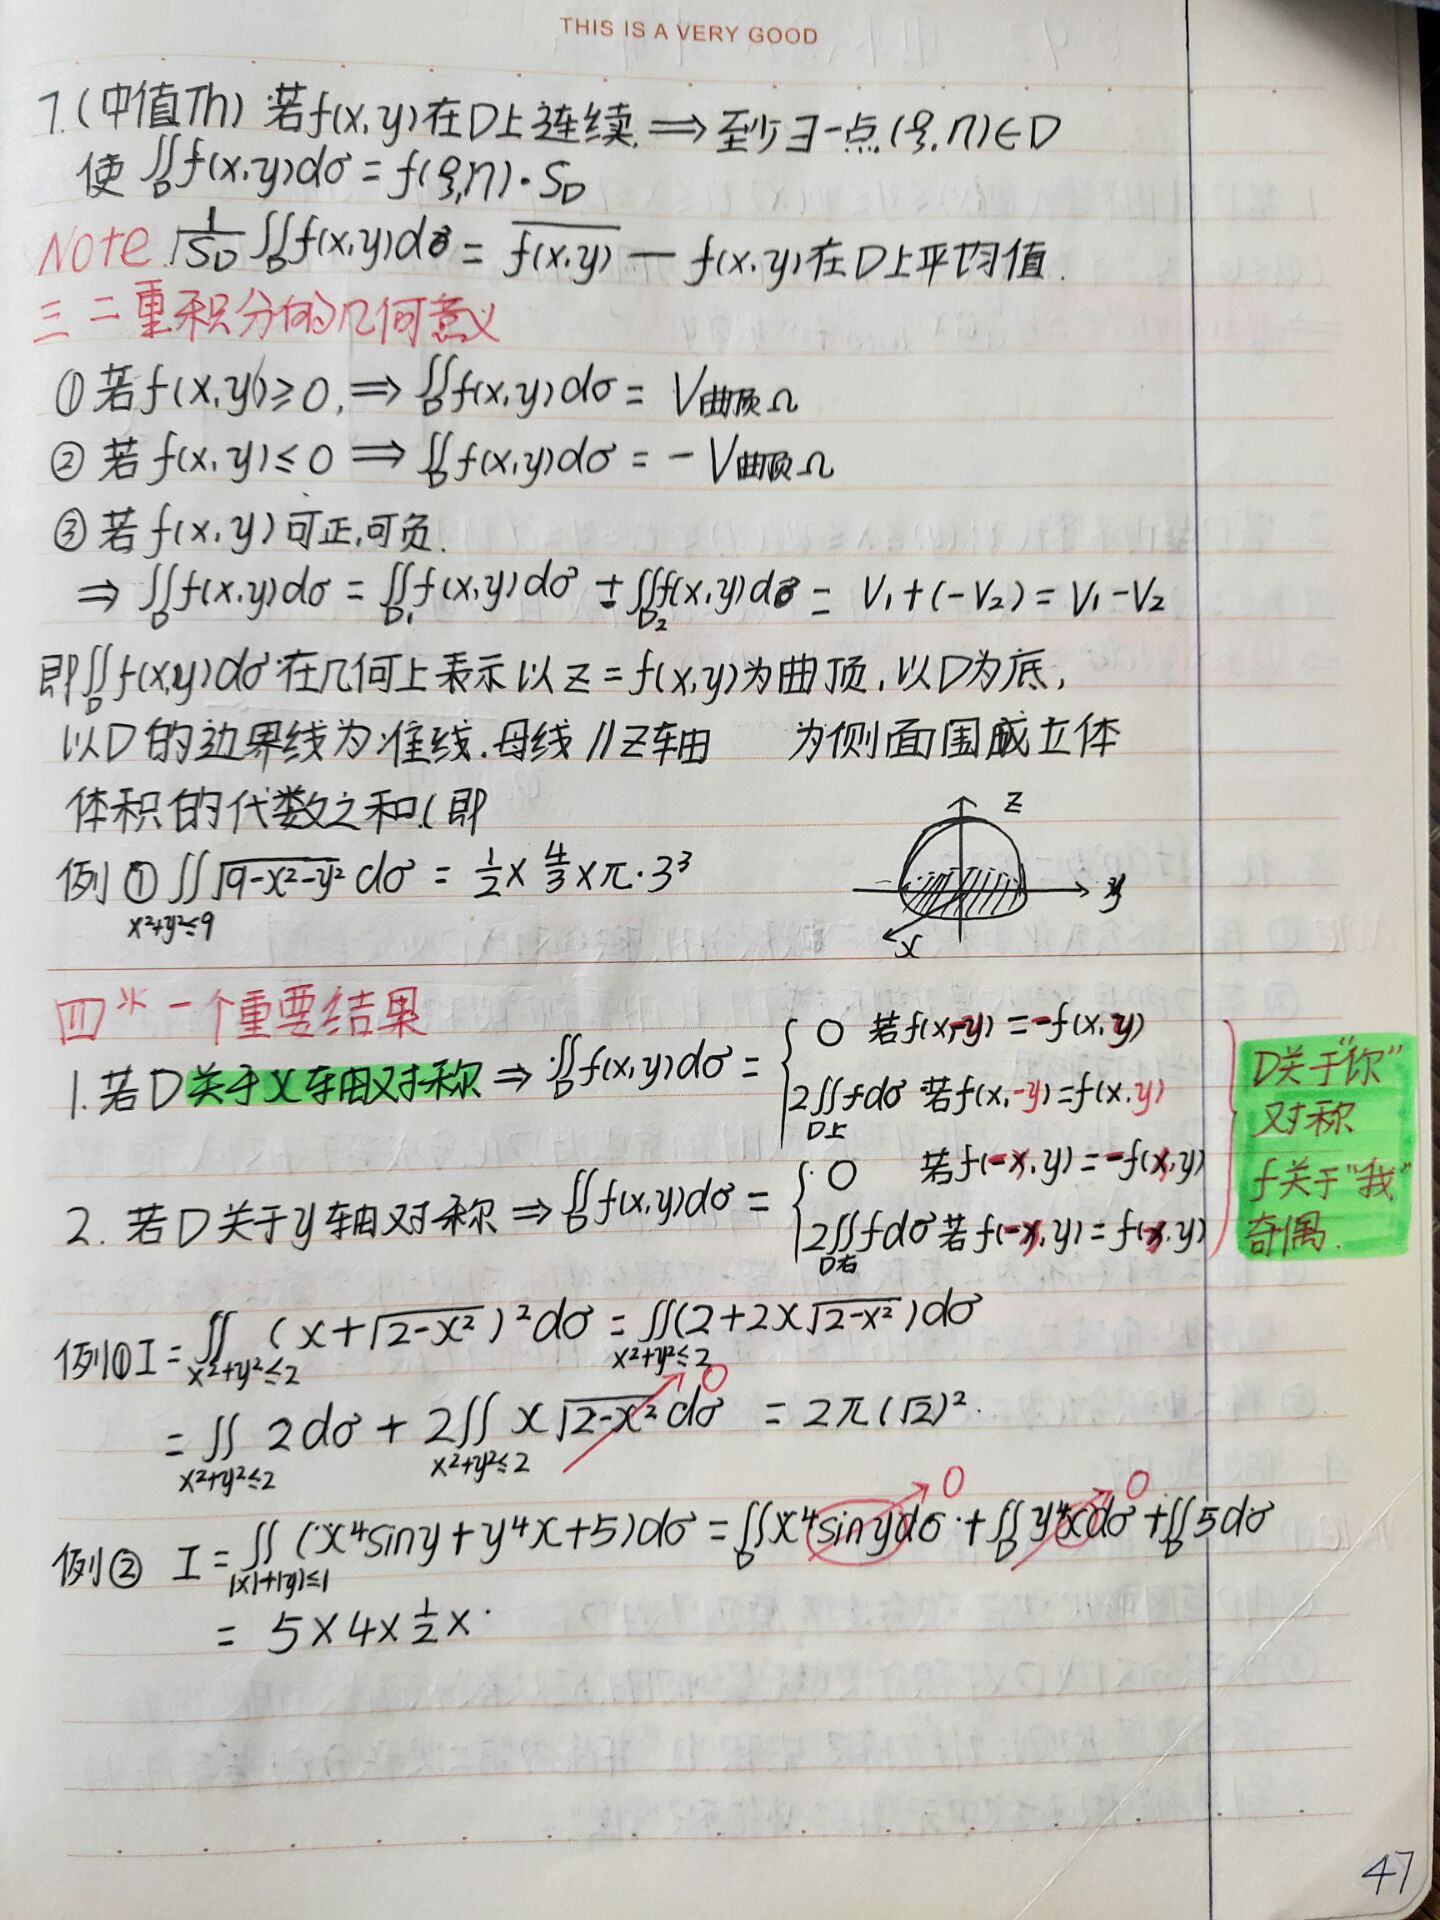 THIS IS A VERY GOOD
7.(中值Th) 若f(x,y)在D上连续,⟹至少∃一点(ξ,η)∈D
使 ∬_D f(x,y)dσ = f(ξ,η)·S_D
Note. 1/S_D ∬_D f(x,y)dσ = \overline{f(x,y)} — f(x,y)在D上平均值.
三 二重积分的几何意义
① 若f(x,y)≥0,⟹ ∬_D f(x,y)dσ = V曲顶Ω
② 若f(x,y)≤0 ⟹ ∬_D f(x,y)dσ = -V曲顶Ω
③ 若f(x,y)可正,可负.
⟹ ∬_D f(x,y)dσ = ∬_{D₁} f(x,y)dσ + ∬_{D₂} f(x,y)dσ = V₁+(-V₂) = V₁-V₂
即∬_D f(x,y)dσ在几何上表示以z=f(x,y)为曲顶,以D为底,
以D的边界线为准线.母线∥Z轴由 为侧面围成立体
体积的代数之和.(即
例① ∬_{x²+y²≤9} √(9-x²-y²) dσ = 1/2 × 4/3 × π·3³
z
y
x
四* 一个重要结果
1. 若D关于x轴对称 ⟹ ∬_D f(x,y)dσ = { 0 若f(x,-y) = -f(x,y)
2∬_{D上} fdσ 若f(x,-y)=f(x,y)
2. 若D关于y轴对称 ⟹ ∬_D f(x,y)dσ = { 0 若f(-x,y)=-f(x,y)
2∬_{D右} fdσ 若f(-x,y)=f(x,y)
D关于"你"
对称
f关于"我"
奇偶.
例① I = ∬_{x²+y²≤2} (x+√(2-x²))²dσ = ∬_{x²+y²≤2} (2+2x√(2-x²))dσ
= ∬_{x²+y²≤2} 2dσ + 2∬_{x²+y²≤2} x√(2-x²) dσ 0 = 2π(√2)².
例② I = ∬_{|x|+|y|≤1} (x⁴siny+y⁴x+5)dσ = ∬_D x⁴sinydσ 0 + ∬_D y⁴xdσ 0 + ∬_D 5dσ
= 5×4×1/2×
47